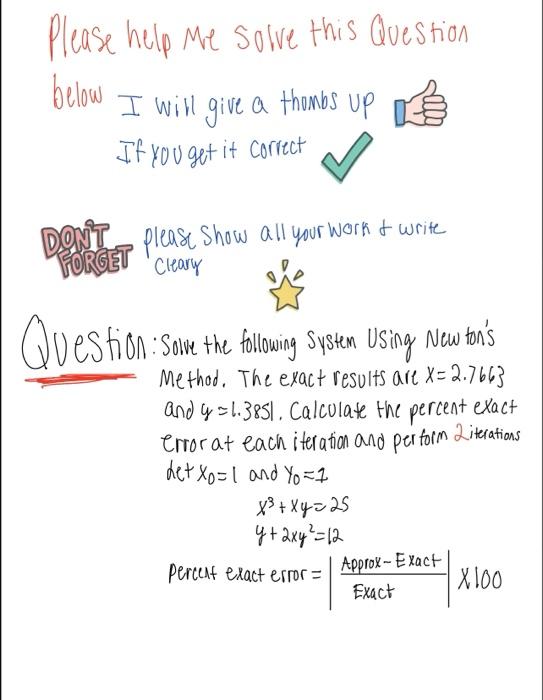 Please help Me Solve this Question
below I will give a thombs up
If you get it correct
DON'T
FORGET
please Show all your work & write
Cleary
Question: Solve the following System Using Newton's
Method. The exact results are X=2.7663
and y=1.3851. Calculate the percent exact
error at each iteration and perform 2 iterations
let X₀=1 and Y₀=1
X³+Xy=25
y+2xy²=12
percent exact error = | Approx-Exact / Exact | X100